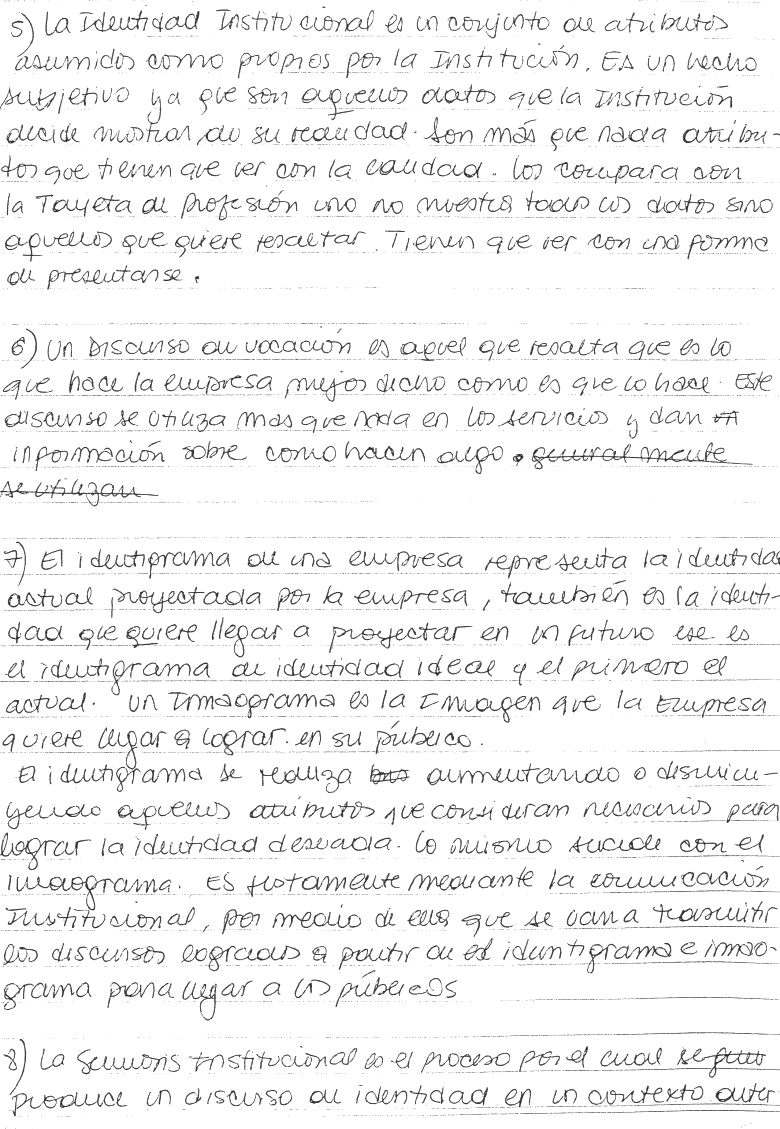 5) La Identidad Institucional es un conjunto de atributos
asumidos como propios por la Institución. Es un hecho
subjetivo ya que son aquellos datos que la Institución
decide mostrar, de su realidad. Son más que nada atribu-
tos que tienen que ver con la calidad. Los compara con
la Tarjeta de Profesión uno no muestra todos los datos sino
aquellos que quiere resaltar. Tienen que ver con una forma
de presentarse.
6) Un Discurso de vocación es aquel que resalta que es lo
que hace la empresa mejor dicho como es que lo hace. Este
discurso se utiliza mas que nada en los servicios y dan
información sobre como hacen algo. generalmente
se utilizan
7) El identigrama de una empresa representa la identidad
actual proyectada por la empresa, también es la identi-
dad que quiere llegar a proyectar en un futuro ese es
el identigrama de identidad ideal y el primero el
actual. Un Imaograma es la Imagen que la Empresa
quiere llegar a lograr en su público.
El identigrama se realiza aumentando o disminu-
yendo aquellos atributos que consideran necesarios para
lograr la identidad deseada. Lo mismo sucede con el
imaograma. Es justamente mediante la comunicación
Institucional, por medio de ella que se van a trasmitir
los discursos logrados a partir de el identigrama e imao-
grama para llegar a los públicos
8) La Semiosis Institucional es el proceso por el cual se
produce un discurso de identidad en un contexto deter